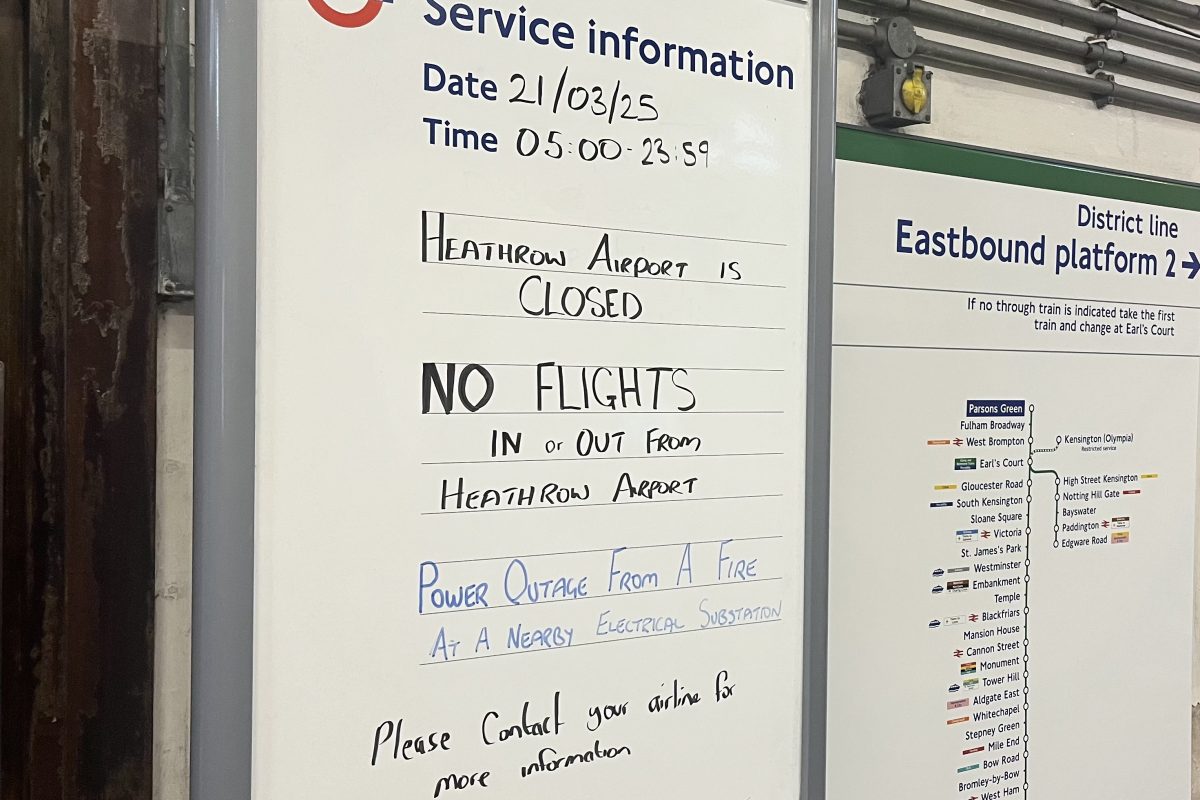 Service information
Date 21/03/25
Time 05:00-23:59
HEATHROW AIRPORT IS
CLOSED
NO FLIGHTS
IN or OUT FROM
HEATHROW AIRPORT
POWER OUTAGE FROM A FIRE
AT A NEARBY ELECTRICAL SUBSTATION
Please Contact your airline for
more information
District line
Eastbound platform 2 →
If no through train is indicated take the first
train and change at Earl's Court
Parsons Green
Fulham Broadway
West Brompton
Kensington (Olympia)
Restricted service
Earl's Court
High Street Kensington
Gloucester Road
Notting Hill Gate
South Kensington
Bayswater
Sloane Square
Paddington
Victoria
Edgware Road
St. James's Park
Westminster
Embankment
Temple
Blackfriars
Mansion House
Cannon Street
Monument
Tower Hill
Aldgate East
Whitechapel
Stepney Green
Mile End
Bow Road
Bromley-by-Bow
West Ham